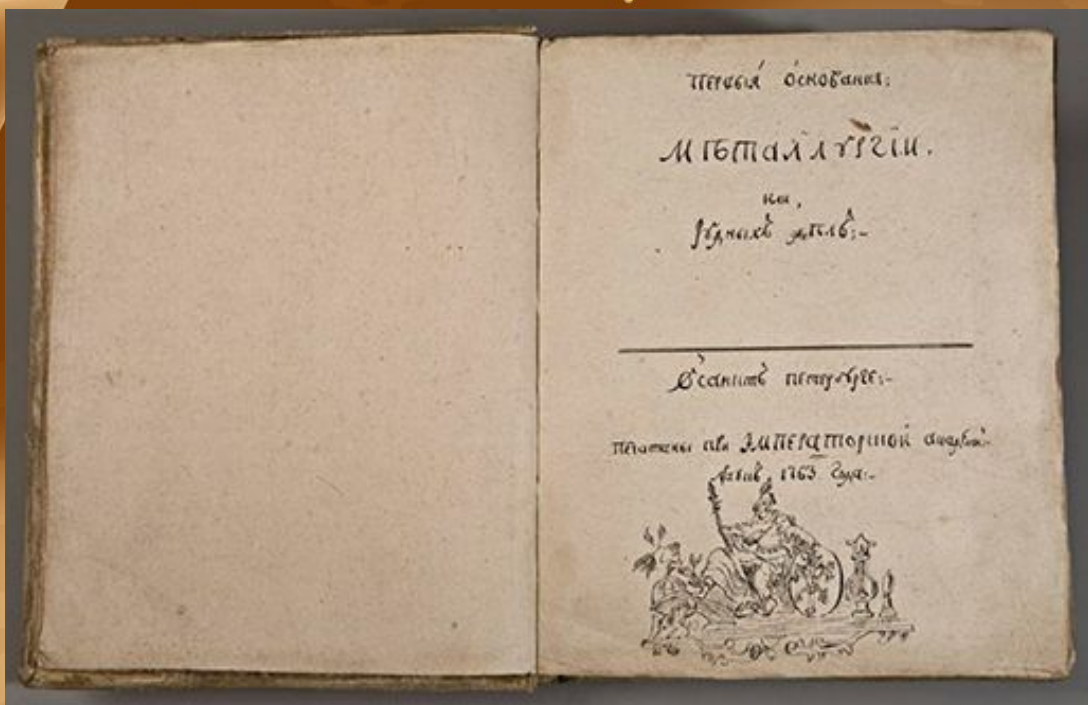 Первыя основания:
МѢталлургїи.
на,
рудныхъ дѣлъ:-
Всанктъ петербурге:-
печатаны при Императорской академїи
наукъ, 1763 года:-